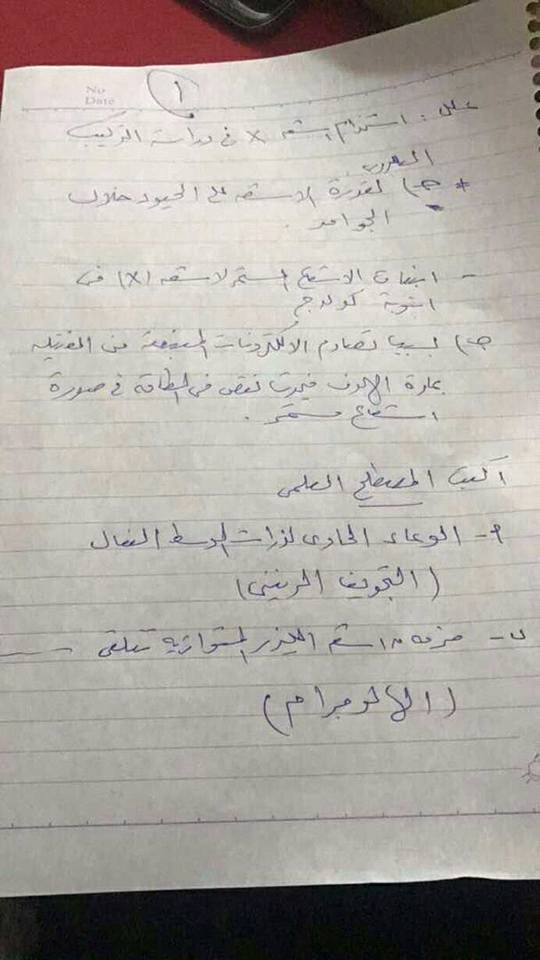 No
Date
١
علل : استخدام اشعه X في دراسة التركيب
البلوري
* جـ) لقدرة الاشعه على الحيود خلال
الجوامد .
- انبعاث الاشعاع المستمر لاشعه (X) فى
انبوبة كولدج
جـ) بسبب تصادم الالكترونات المنبعثة من الفتيله
بمادة الهدف فيحدث نقص فى الطاقة فى صورة
اشعاع مستمر .
اكتب المصطلح العلمى
٩- الوعاء الحاوى لذرات الوسط الفعال
(التجويف الرنينى)
ب- حزمه من اشعه الليزر المتوازيه تلتقى
(الهولوجرام)